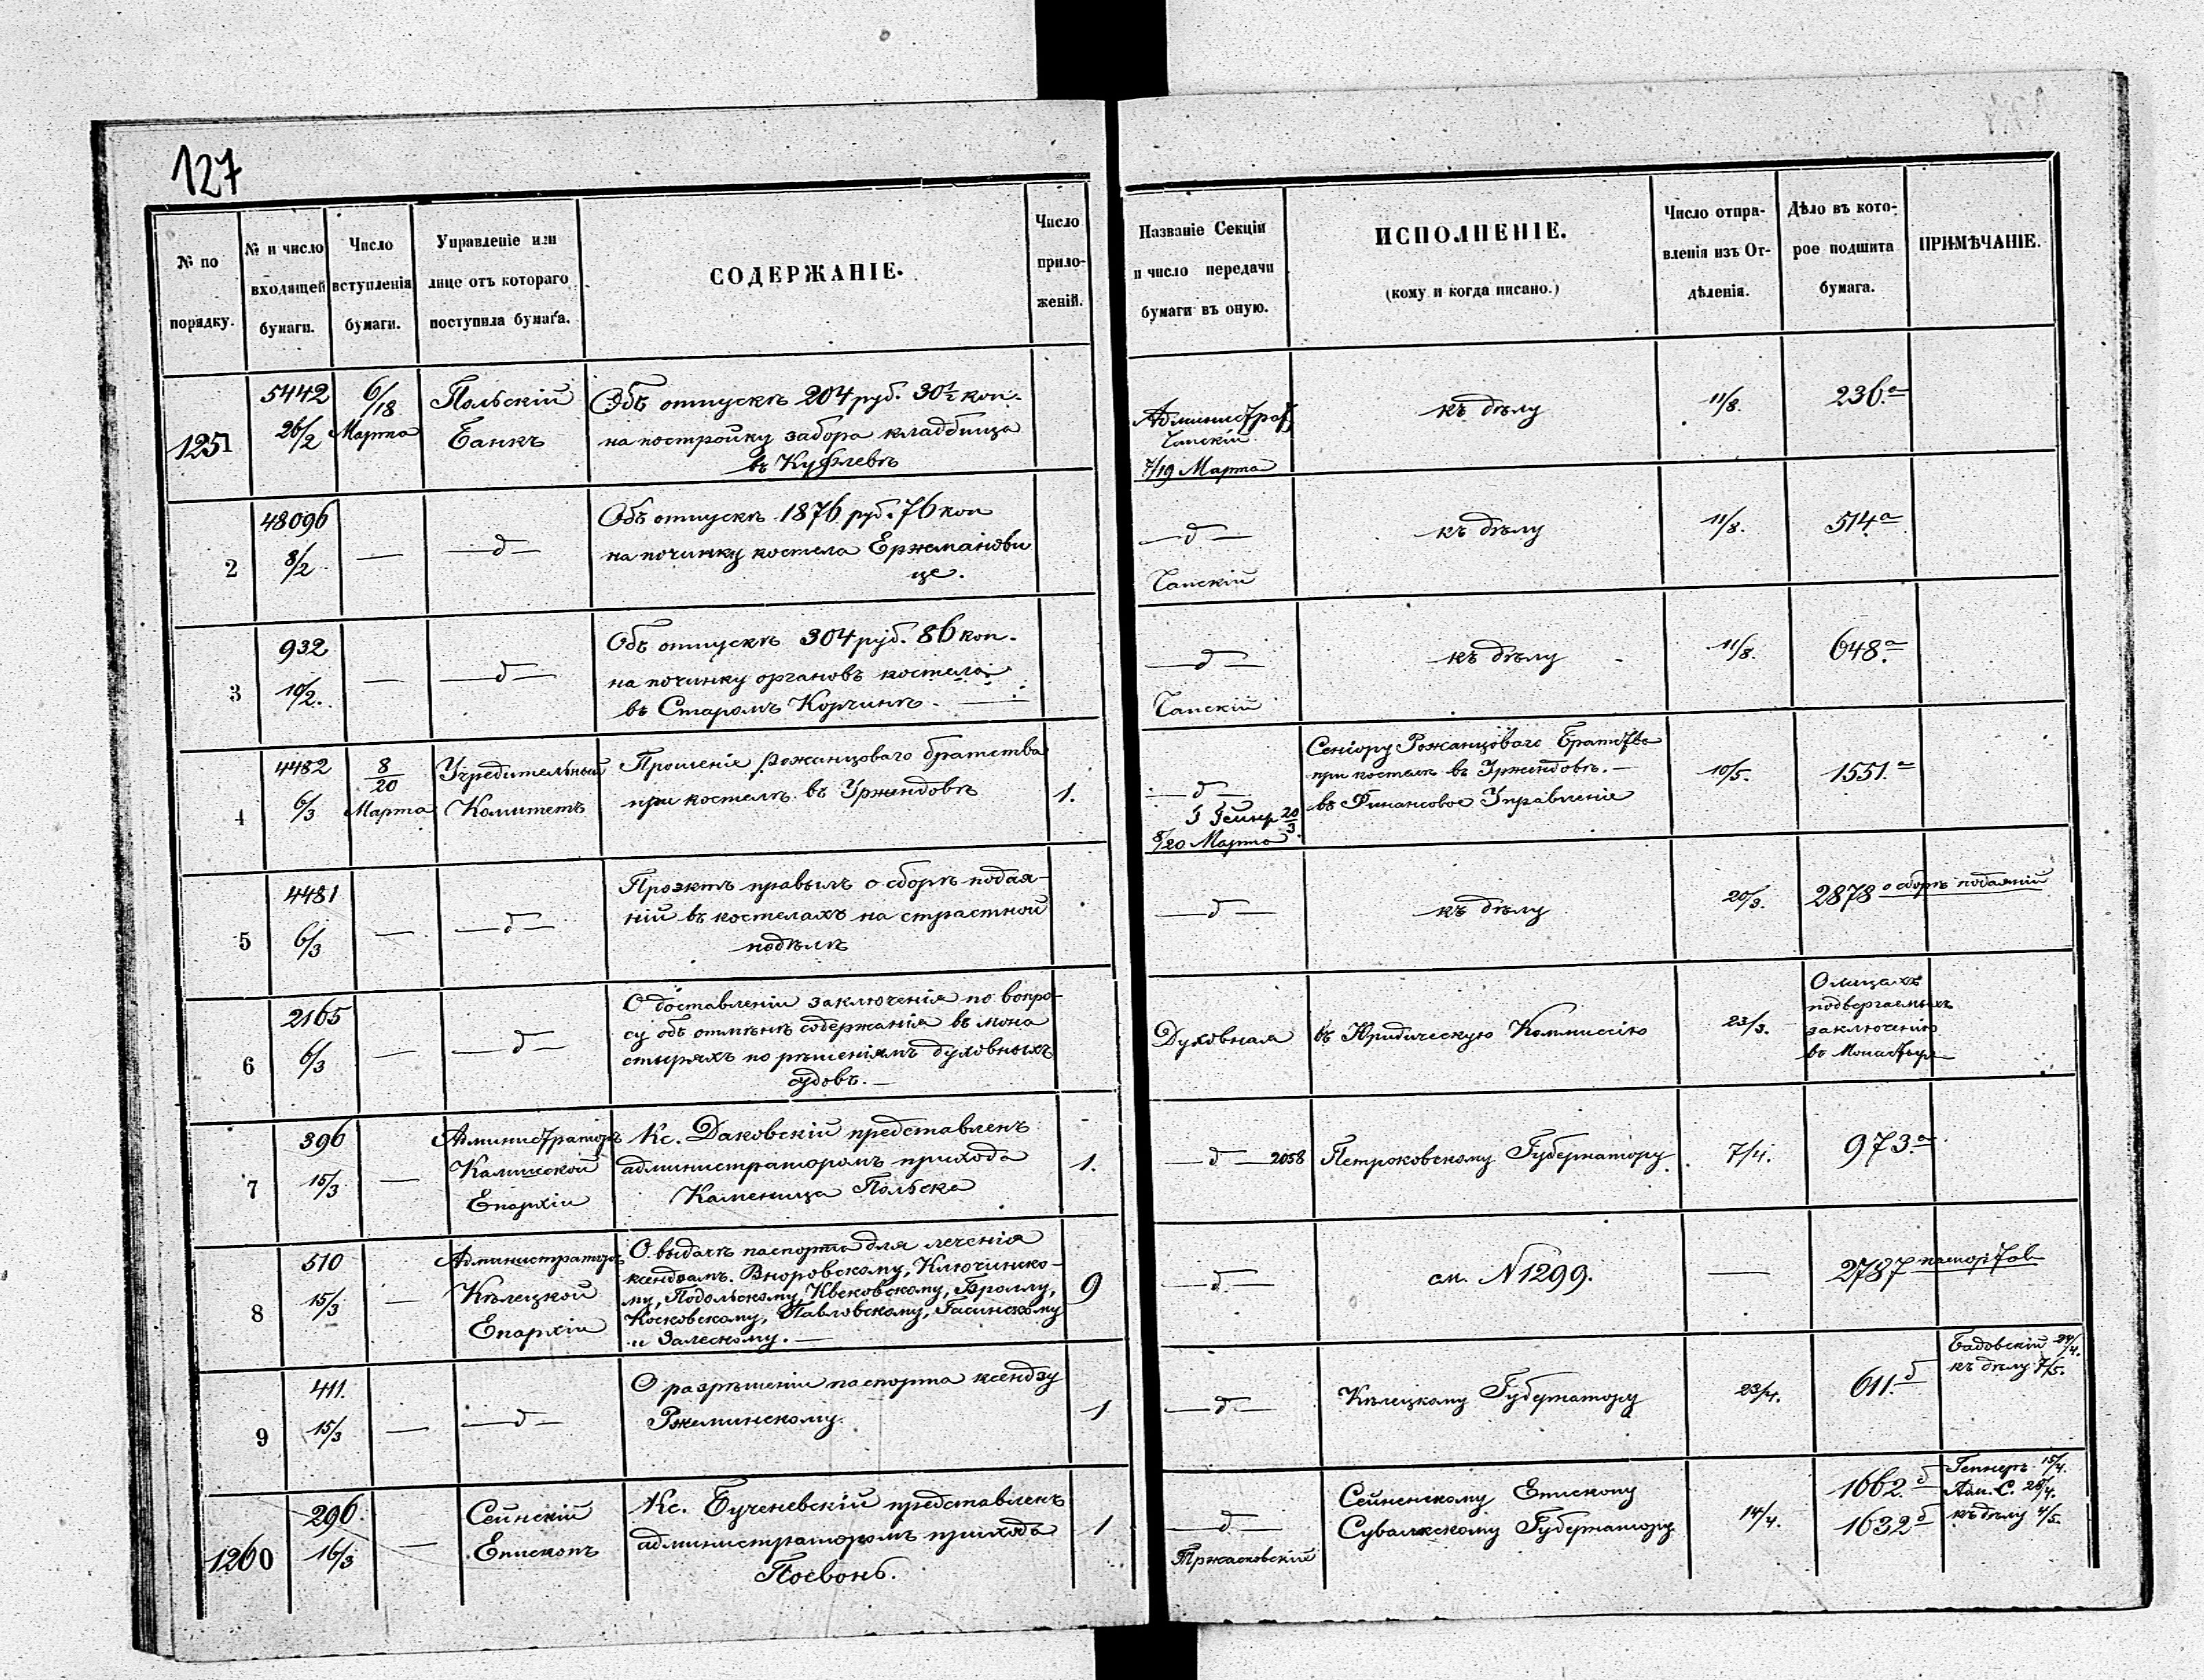 127
№ по порядку.
№ и число входящей бумаги.
Число вступленія бумаги.
Управленіе или лице отъ котораго поступила бумага.
СОДЕРЖАНІЕ.
Число приложеній.
Названіе Секціи и число передачи бумаги въ оную.
ИСПОЛНЕНІЕ.
(кому и когда писано.)
Число отправленія изъ Отдѣленія.
Дѣло въ которое подшита бумага.
ПРИМѢЧАНІЕ.
1251
5442
26/2
6/18
Марта
Польскій
Банкъ
Объ отпускѣ 204 руб. 30½ коп.
на постройку забора кладбища
въ Куфлевѣ
7/19 Марта
къ дѣлу
11/8.
236.а
2
48096
8/2
—
—д—
Объ отпускѣ 1876 руб. 76 коп
на починку костела Ержманови
це.
—д—
къ дѣлу
11/8.
514.а
3
932
10/2.
—
—д—
Объ отпускѣ 304 руб. 86 коп.
на починку органовъ костела
въ Старомъ Корчинѣ.
—д—
къ дѣлу
11/8.
648.а
4
4482
6/3
8/20
Марта
Учредительный
Комитетъ
Прошеніе Рожанцоваго братства
при костелѣ въ Уржендовѣ
1.
—д—
20/3.
8/20 Марта
Сеніору Рожанцоваго Братства
при костелѣ въ Уржендовѣ.—
въ Финансовое Управленіе
10/5.
1551.а
5
4481
6/3
—
—д—
Проэктъ правилъ о сборѣ подая-
ній въ костелахъ на страстной
недѣлѣ
—д—
къ дѣлу
20/3.
2878 о сборѣ подаяній
6
2165
6/3
—
—д—
О доставленіи заключенія по вопро-
су объ отмѣнѣ содержанія въ мона
стыряхъ по рѣшеніямъ духовныхъ
судовъ.—
Духовная
въ Юридическую Коммиссію
23/3.
О лицахъ
подвергаемыхъ
заключенію
въ Монастыр
7
396
15/3
—
Администраторъ
Калишской
Епархіи
Кс. Даковскій представленъ
администраторомъ прихода
Каменица Польска
1.
—д— 2058
Петроковскому Губернатору.
7/4.
973.а
8
510
15/3
—
Администраторъ
Кѣлецкой
Епархіи
О выдачѣ паспорта для леченія
ксендзамъ. Вноровскому, Ключинско-
му, Подольскому, Квековскому, Броллу,
Косковскому, Павловскому, Гасинскому
и Залескому.—
9
—д—
см. N 1299.
—
2787
9
411.
15/3
—
—д—
О разрѣшеніи паспорта ксендзу
Ржеминскому.
1
—д—
Кѣлецкому Губернатору
23/4.
611.б
Бадовскій 24/4.
къ дѣлу 7/5.
1260
296.
16/3
—
Сейнскій
Епископъ
Кс. Бученевскій представленъ
администраторомъ прихода
Посвонь.
1
—д—
Тржасковскій
Сейненскому Епископу
Сувалкскому Губернатору
14/4.
1662.б
1632б
Геппнеръ 15/4.
Адм. С. 26/4.
къ дѣлу 4/5.